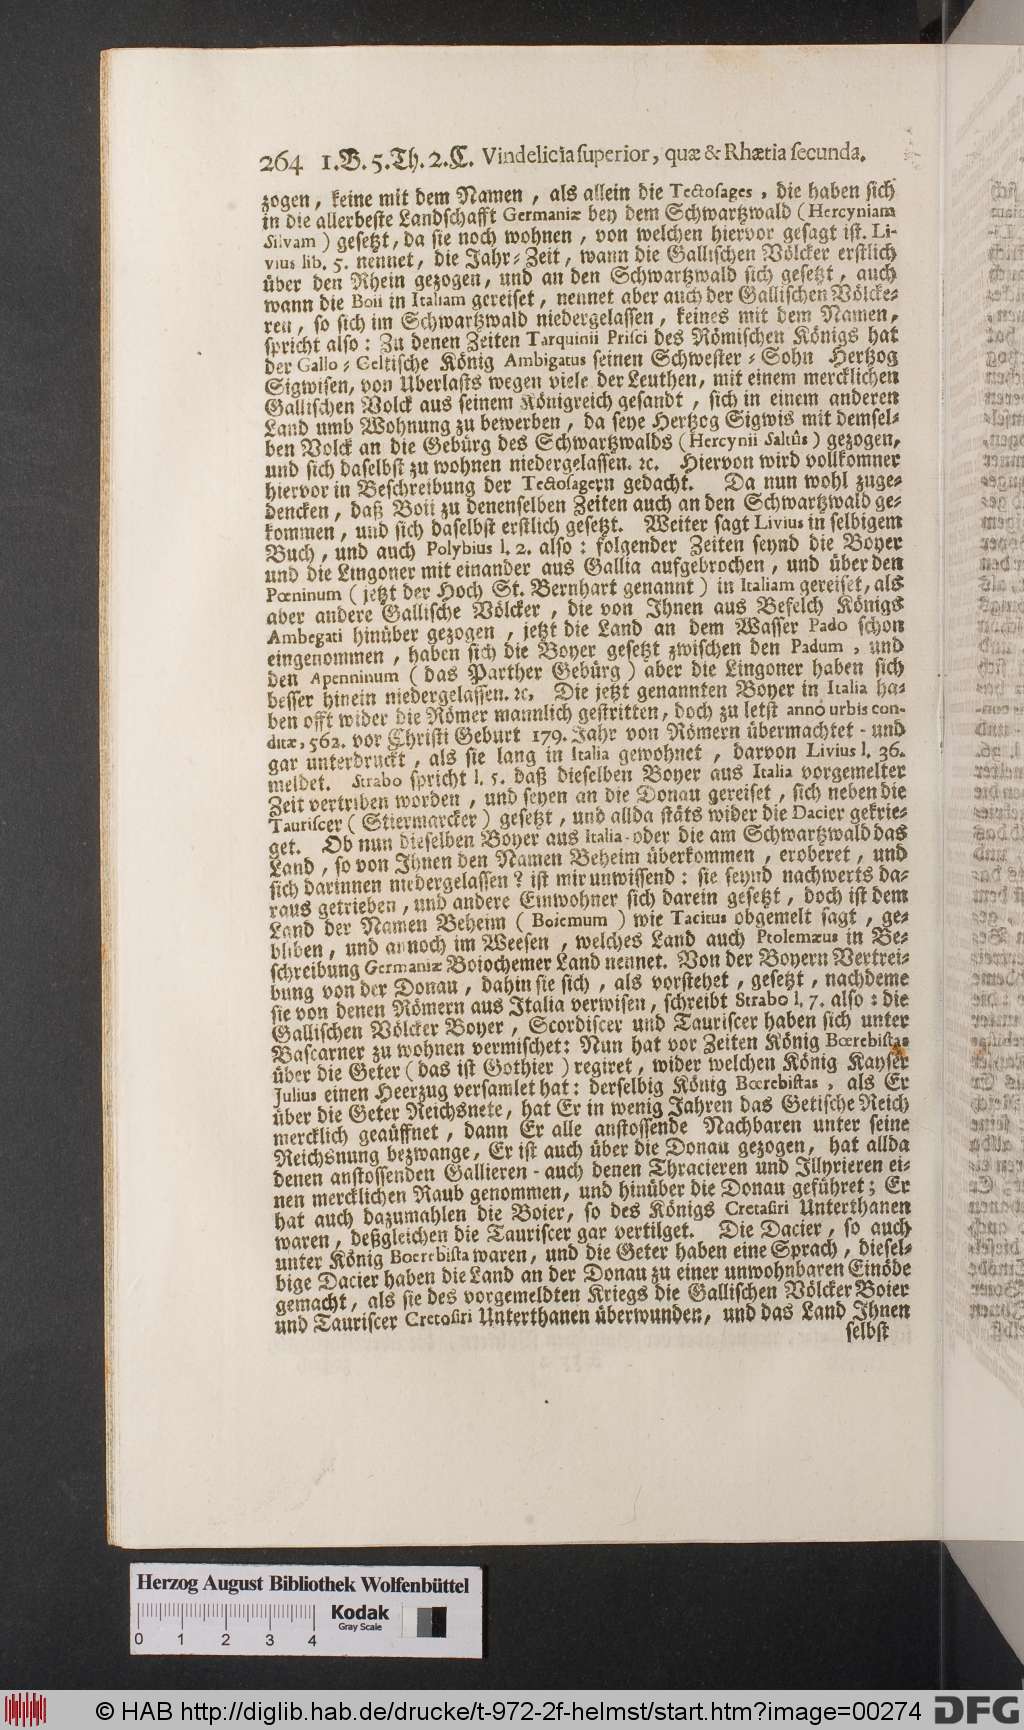 264 1. B. 5. Th. 2. C. Vindelicia superior, quæ & Rhætia secunda.
zogen, keine mit dem Namen, als allein die Tectosages, die haben sich
in die allerbeste Landschafft Germaniæ bey dem Schwartzwald (Hercyniam
Silvam) gesetzt, da sie noch wohnen, von welchen hiervor gesagt ist. Li-
vius lib. 5. nennet, die Jahr-Zeit, wann die Gallischen Völcker erstlich
über den Rhein gezogen, und an den Schwartzwald sich gesetzt, auch
wann die Boii in Italiam gereiset, nennet aber auch der Gallischen Völcke-
ren, so sich im Schwartzwald niedergelassen, keines mit dem Namen,
spricht also: Zu denen Zeiten Tarquinii Prisci des Römischen Königs hat
der Gallo-Celtische König Ambigatus seinen Schwester-Sohn Hertzog
Sigwisen, von Uberlasts wegen viele der Leuthen, mit einem mercklichen
Gallischen Volck aus seinem Königreich gesandt, sich in einem anderen
Land umb Wohnung zu bewerben, da seye Hertzog Sigwis mit demsel-
ben Volck an die Gebürg des Schwartzwalds (Hercynii Saltûs) gezogen,
und sich daselbst zu wohnen niedergelassen. ꝛc. Hiervon wird vollkomner
hiervor in Beschreibung der Tectosagern gedacht. Da nun wohl zuge-
dencken, daß Boii zu denenselben Zeiten auch an den Schwartzwald ge-
kommen, und sich daselbst erstlich gesetzt. Weiter sagt Livius in selbigem
Buch, und auch Polybius l. 2. also: folgender Zeiten seynd die Boyer
und die Lingoner mit einander aus Gallia aufgebrochen, und über den
Pœninum (jetzt der Hoch St. Bernhart genannt) in Italiam gereiset, als
aber andere Gallische Völcker, die von Ihnen aus Befelch Königs
Ambegati hinüber gezogen, jetzt die Land an dem Wasser Pado schon
eingenommen, haben sich die Boyer gesetzt zwischen den Padum, und
den Apenninum (das Parther Gebürg) aber die Lingoner haben sich
besser hinein niedergelassen. ꝛc. Die jetzt genannten Boyer in Italia ha-
ben offt wider die Römer mannlich gestritten, doch zu letst anno urbis con-
ditæ, 562. vor Christi Geburt 179. Jahr von Römern übermachtet- und
gar unterdruckt, als sie lang in Italia gewohnet, darvon Livius l. 36.
meldet. Strabo spricht l. 5. daß dieselben Boyer aus Italia vorgemelter
Zeit vertriben worden, und seyen an die Donau gereiset, sich neben die
Tauriscer (Stiermarcker) gesetzt, und allda stäts wider die Dacier gekrie-
get. Ob nun dieselben Boyer aus Italia- oder die am Schwartzwald das
Land, so von Ihnen den Namen Beheim überkommen, eroberet, und
sich darinnen niedergelassen? ist mir unwissend: sie seynd nachwerts da-
raus getrieben, und andere Einwohner sich darein gesetzt, doch ist dem
Land der Namen Beheim (Boiemum) wie Tacitus obgemelt sagt, ge-
bliben, und annoch im Weesen, welches Land auch Ptolemæus in Be-
schreibung Germaniæ Boiochemer Land nennet. Von der Boyern Vertrei-
bung von der Donau, dahin sie sich, als vorstehet, gesetzt, nachdeme
sie von denen Römern aus Italia verwisen, schreibt Strabo l. 7. also: die
Gallischen Völcker Boyer, Scordiscer und Tauriscer haben sich unter
Bascarner zu wohnen vermischet: Nun hat vor Zeiten König Bœrebistas
über die Geter (das ist Gothier) regiret, wider welchen König Kayser
Julius einen Heerzug versamlet hat: derselbig König Bœrebistas, als Er
über die Geter Reichsnete, hat Er in wenig Jahren das Getische Reich
mercklich geäuffnet, dann Er alle anstossende Nachbaren unter seine
Reichsnung bezwange, Er ist auch über die Donau gezogen, hat allda
denen anstossenden Gallieren- auch denen Thracieren und Illyrieren ei-
nen mercklichen Raub genommen, und hinüber die Donau geführet; Er
hat auch dazumahlen die Boier, so des Königs Cretasiri Unterthanen
waren, deßgleichen die Tauriscer gar vertilget. Die Dacier, so auch
unter König Boerebista waren, und die Geter haben eine Sprach, diesel-
bige Dacier haben die Land an der Donau zu einer unwohnbaren Einöde
gemacht, als sie des vorgemeldten Kriegs die Gallischen Völcker Boier
und Tauriscer Cretosiri Unterthanen überwunden, und das Land Ihnen
selbst
Herzog August Bibliothek Wolfenbüttel
Kodak
Gray Scale
0 1 2 3 4
© HAB http://diglib.hab.de/drucke/t-972-2f-helmst/start.htm?image=00274
DFG